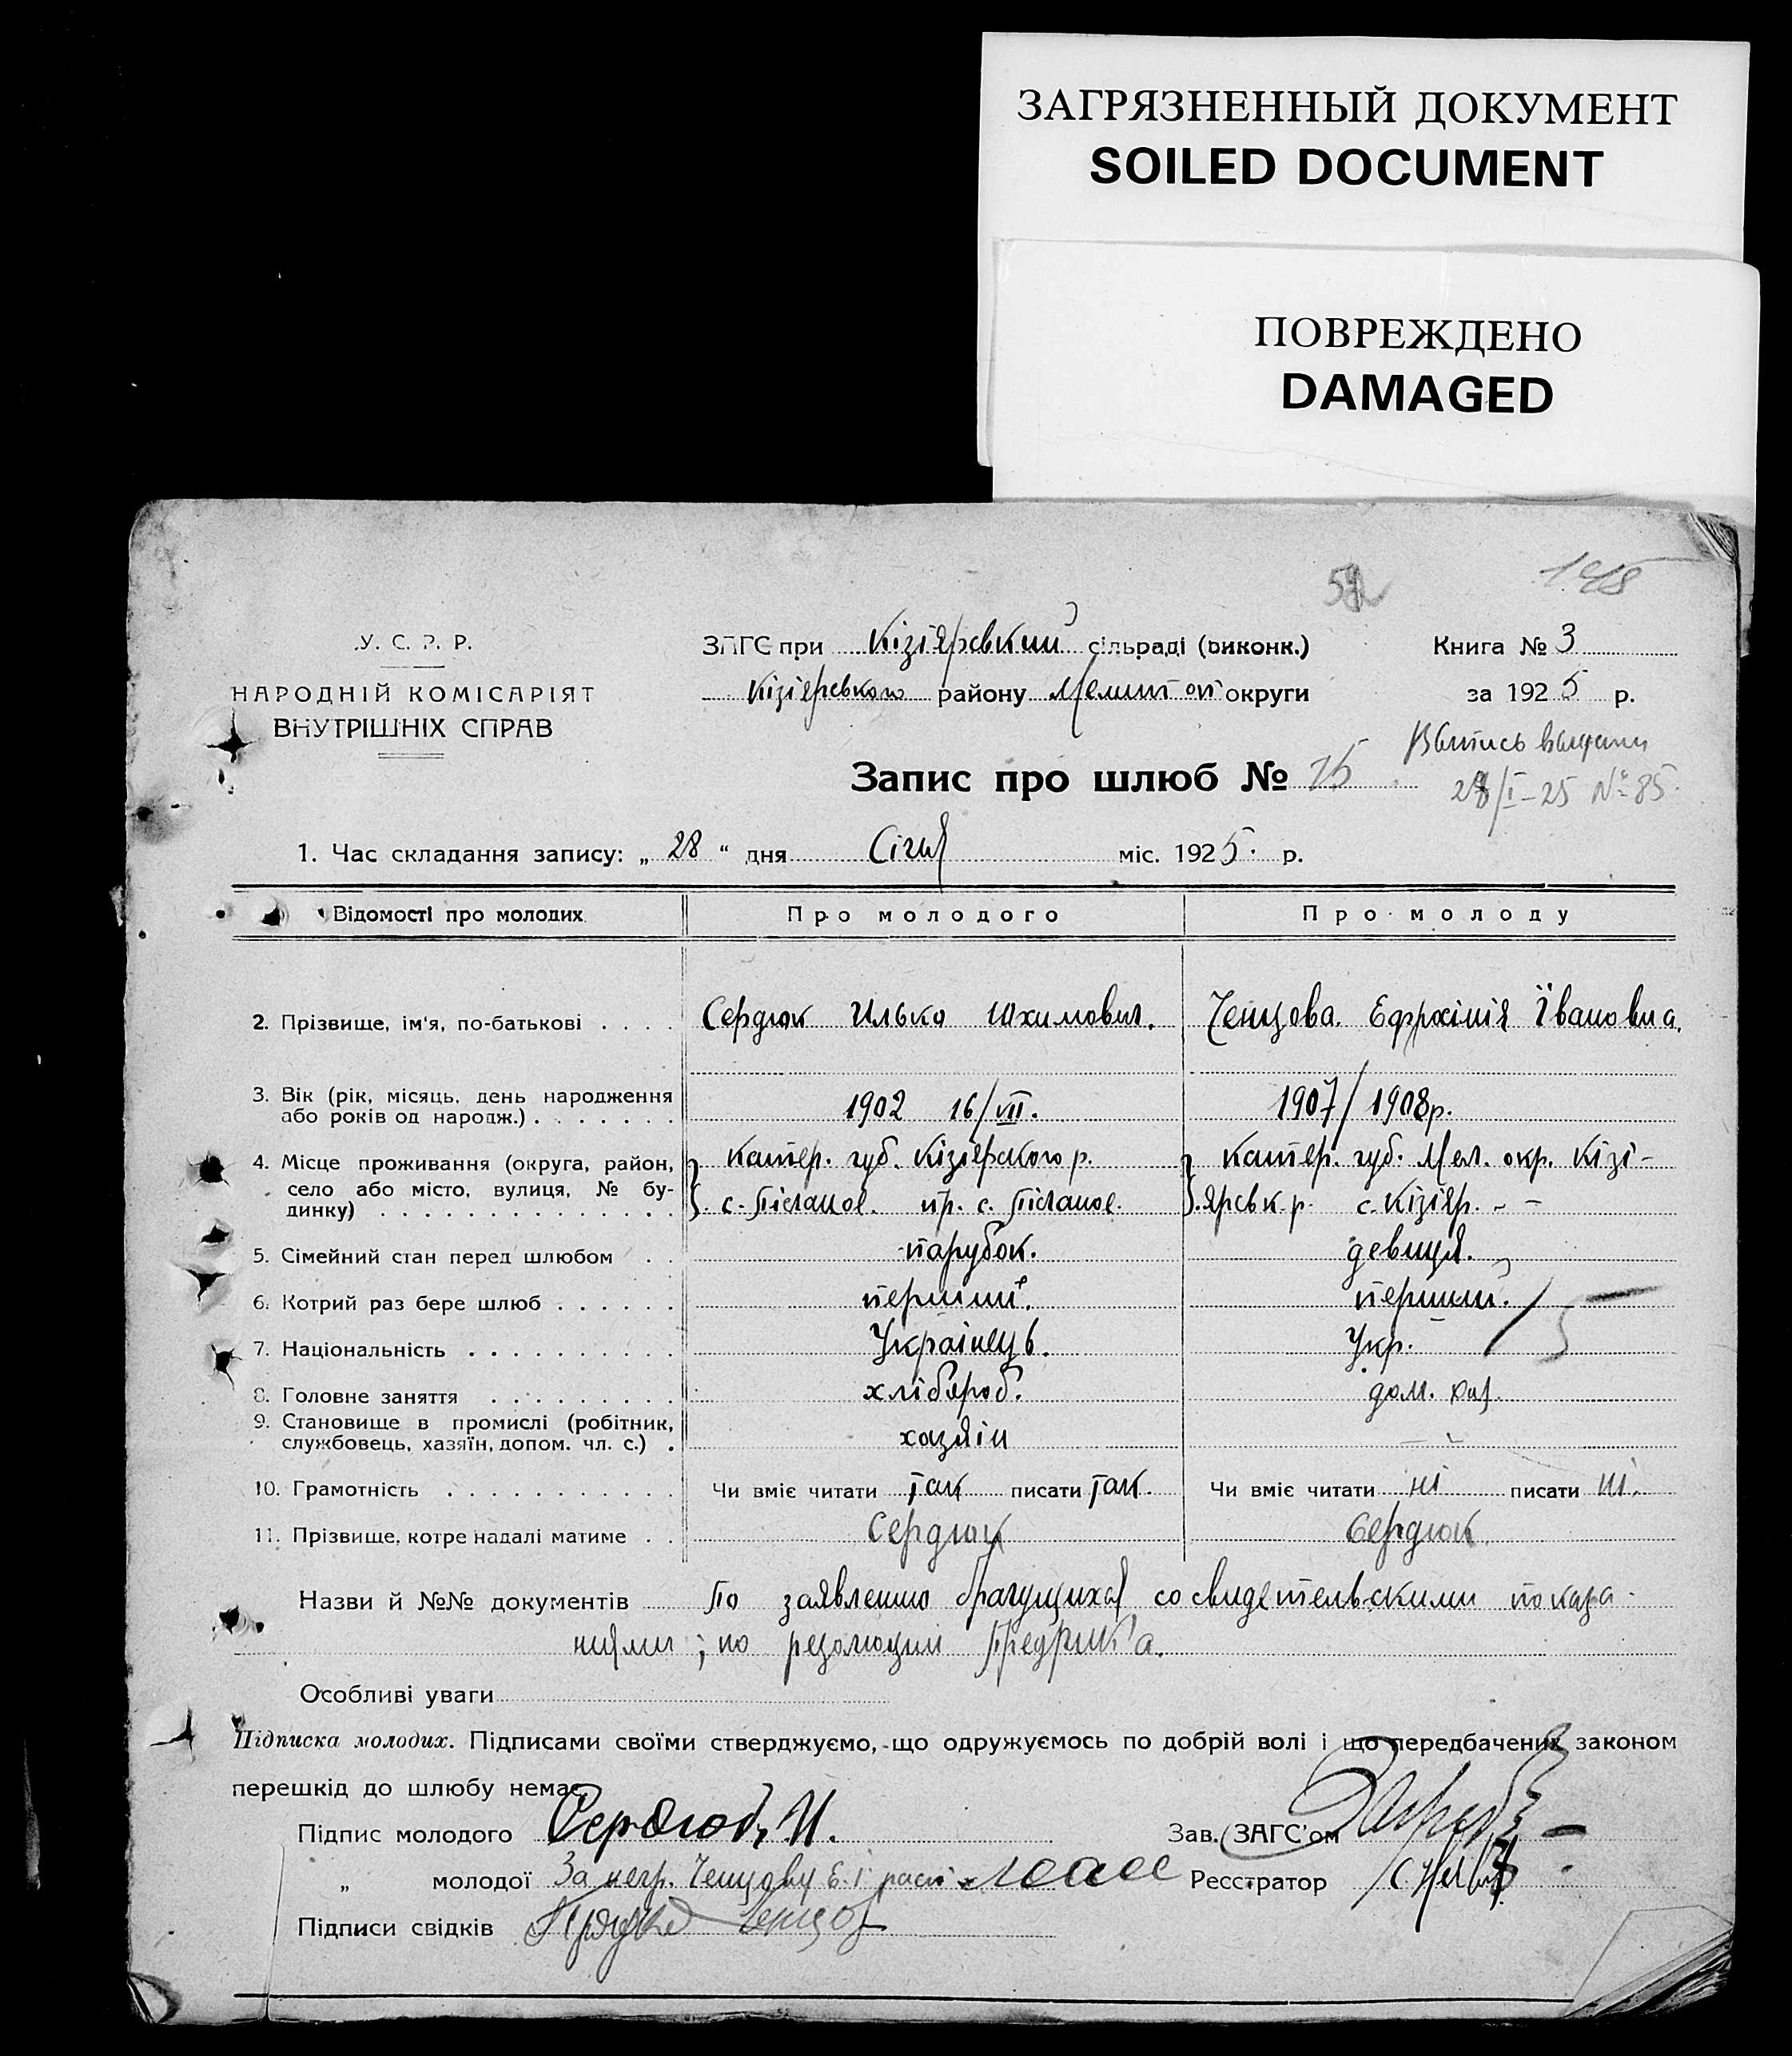 ЗАГРЯЗНЕННЫЙ ДОКУМЕНТ
SOILED DOCUMENT
ПОВРЕЖДЕНО
DAMAGED
148
У. С. Р. Р.
НАРОДНІЙ КОМІСАРІЯТ
ВНУТРІШНІХ СПРАВ
ЗАГС при Кізіярський сільраді (виконк.)
Кізіярського району Мелитоп округи
Книга № 3
за 1925 р.
Запис про шлюб № 15
Выпись выдана
28/I-25 № 85
1. Час складання запису: „ 28 “ дня Січня міс. 1925. р.
Відомості про молодих Про молодого Про молоду
2. Прізвище, ім'я, по-батькові . . . . Сердюк Илько Юхимович. Ченцова Ефрхінія Івановна.
3. Вік (рік, місяць, день народження
або років од народж.) . . . . . . . 1902 16/VII. 1907/1908р.
4. Місце проживання (округа, район, Катер. губ. Кізіярского р. Катер. губ. Мел. окр. Кізі-
село або місто, вулиця, № бу- с. Пісчанов. пр. с. Пісчанов. ярськ. р. с. Кізіяр. - -
динку) . . . . . . . . . . . . . .
5. Сімейний стан перед шлюбом . . парубок. девиця.
6. Котрий раз бере шлюб . . . . . . перший. перший.
7. Національність . . . . . . . . . . Українець. Укр.
8. Головне заняття . . . . . . . . . хлібороб. дом. хоз.
9. Становище в промислі (робітник,
службовець, хазяїн, допом. чл. с.) . хазяін -
10. Грамотність . . . . . . . . . . . Чи вміє читати так писати так. Чи вміє читати ні писати ні.
11. Прізвище, котре надалі матиме . . Сердюк Сердюк
Назви й №№ документів По заявлению брачущихся со свидетельскими показа-
ниями; по резолюции Предрика.
Особливі уваги
Підписка молодих. Підписами своїми стверджуємо, що одружуємось по добрій волі і що передбачених законом
перешкід до шлюбу немає.
Підпис молодого Сердюк И. Зав. ЗАГС'ом
„ молодої За негр. Ченцову Е. І. расп. Реєстратор
Підписи свідків Ченцов